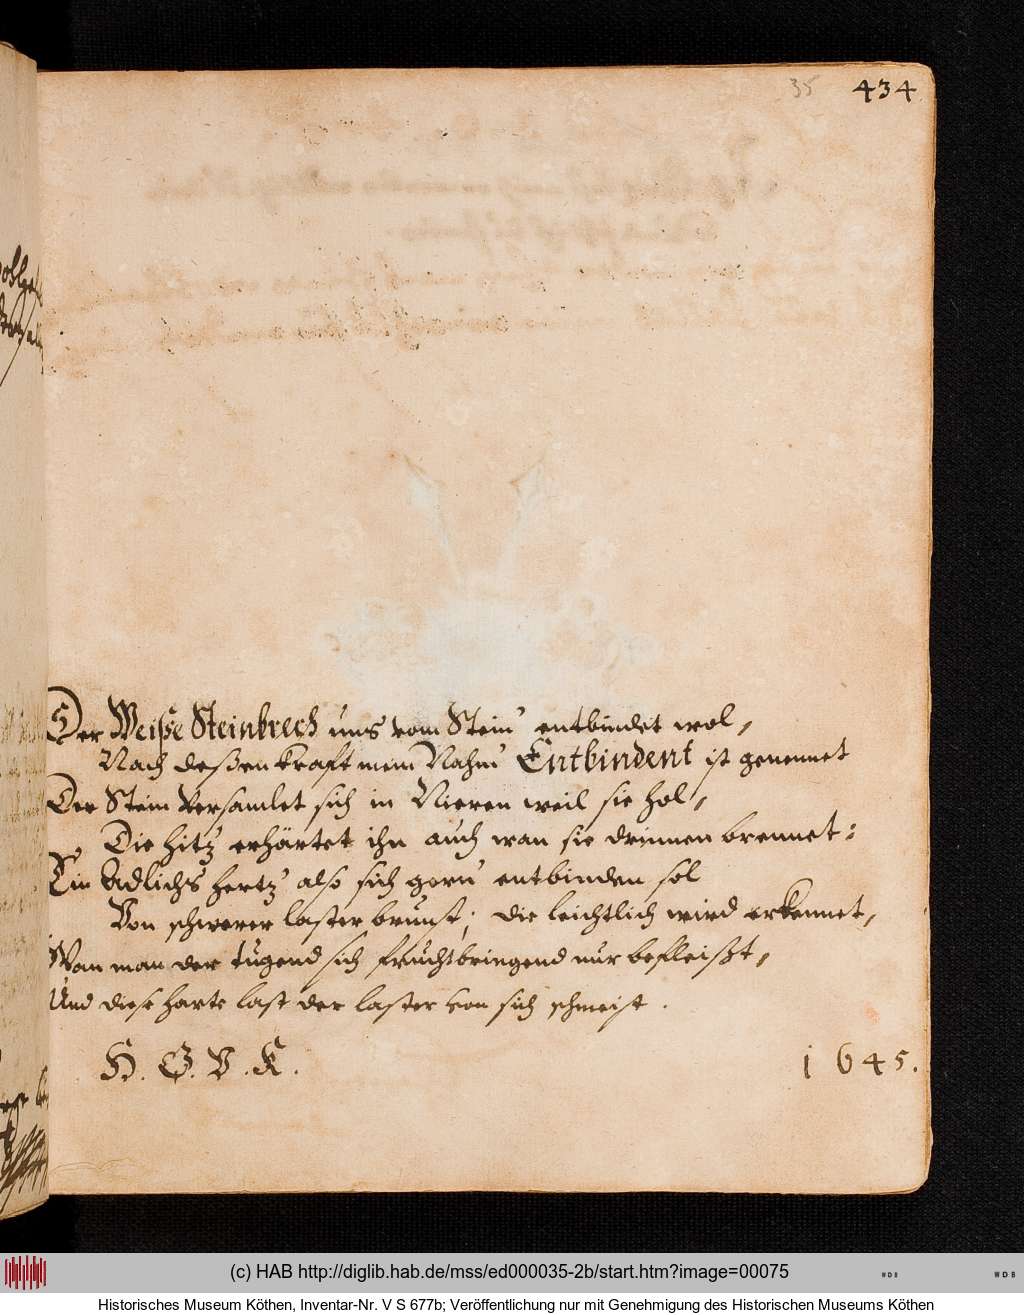 35 434
Der Weiße Steinbrech uns vom Stein entbindet wol,
Nach deßen kraft mein Nahm Entbindent ist genennet
Der Stein versamlet sich in Nieren weil sie hol,
Die hitz erhärtet ihn auch wan sie drinnen brennet:
Ein Adlichs hertz also sich gern entbinden sol
Von schwerer laster brunst, die leichtlich wird erkennet,
Wan man der tugend sich fruchtbringend nur befleißt,
Und diese harte last der laster von sich schmeist.
H. G. V. K. 1645.
(c) HAB http://diglib.hab.de/mss/ed000035-2b/start.htm?image=00075
WDB WDB
Historisches Museum Köthen, Inventar-Nr. V S 677b; Veröffentlichung nur mit Genehmigung des Historischen Museums Köthen